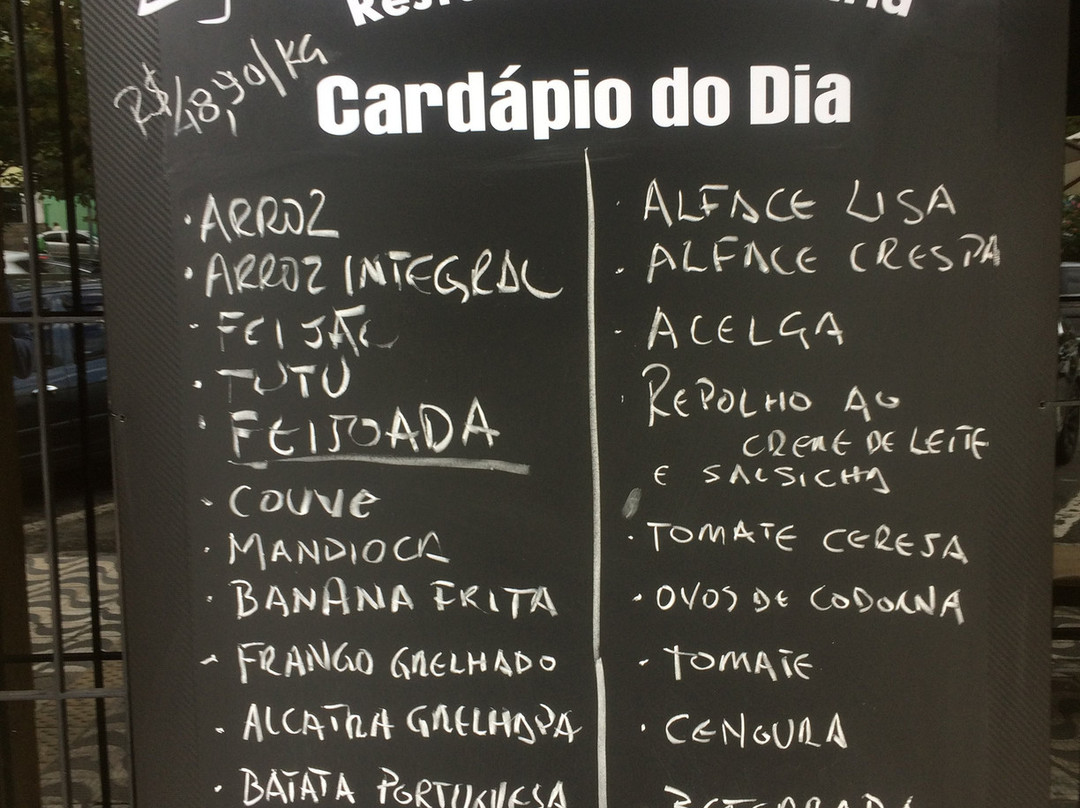 R$48,90/KG
Cardápio do Dia
· ARROZ
· ARROZ INTEGRAL
· FEIJÃO
· TUTU
· FEIJOADA
· COUVE
· MANDIOCA
· BANANA FRITA
· FRANGO GRELHADO
· ALCATRA GRELHADA
· BATATA PORTUGUESA
· ALFACE LISA
· ALFACE CRESPA
· ACELGA
· REPOLHO AO
CREME DE LEITE
E SALSICHA
· TOMATE CEREJA
· OVOS DE CODORNA
· TOMATE
· CENOURA